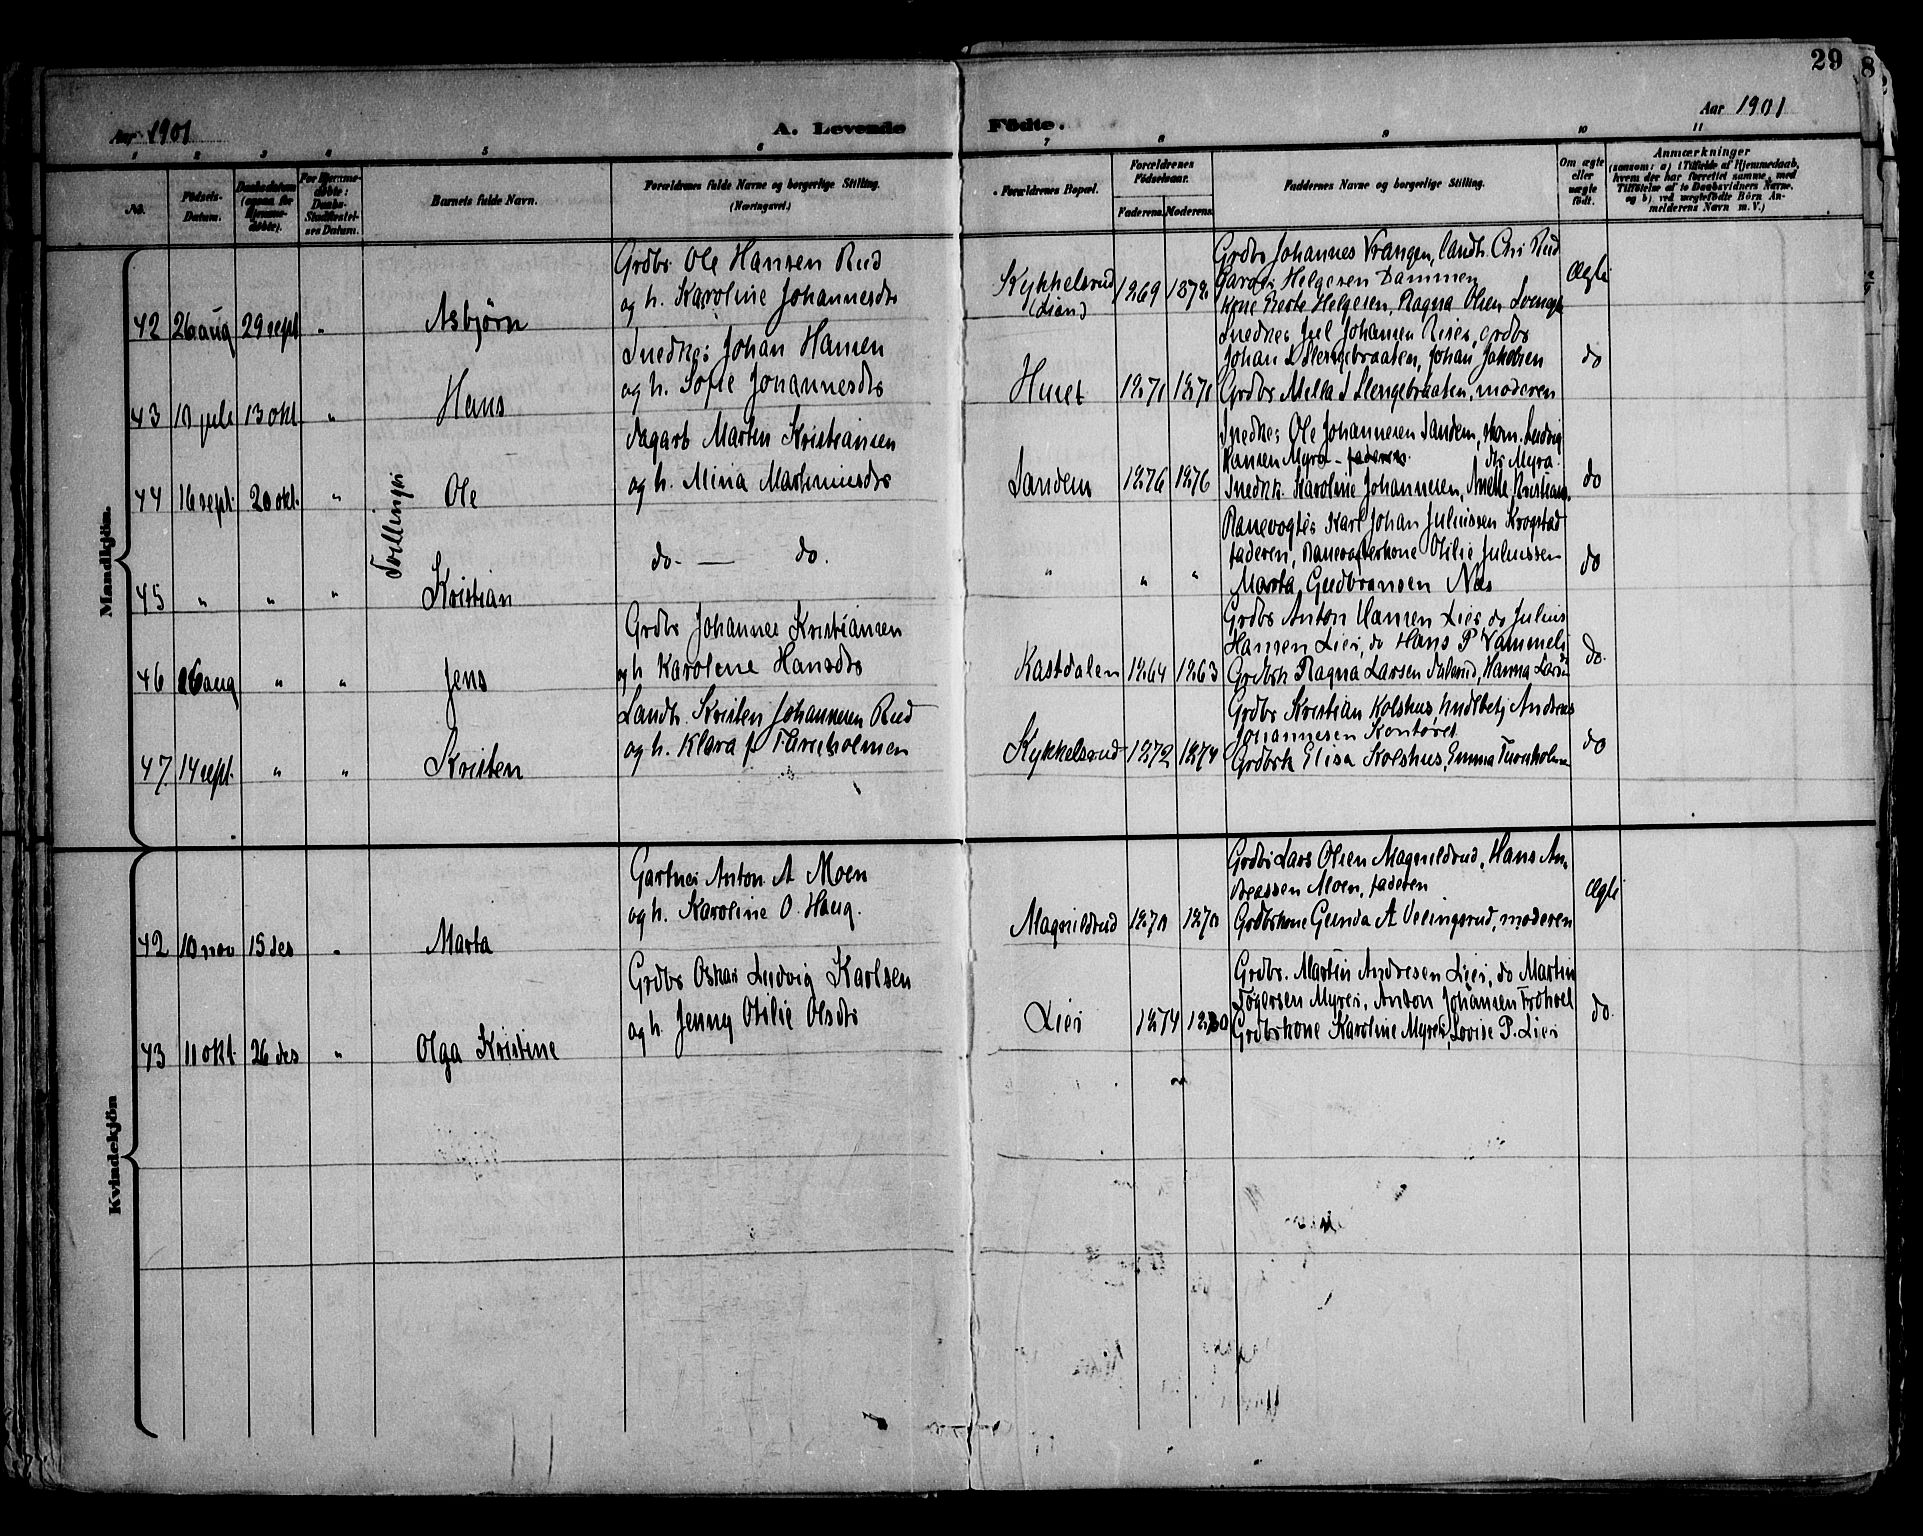 29
8
Aar 1901
A. Levende Födte.
Aar 1901
1 2 3 4 5 6 7 8 9 10 11
No.
Födsels-
Datum.
Daabsdatum
(ogsaa for
Hjemme-
döbte).
For Hjemme-
döbte:
Daabs-
Stadfæstel-
ses Datum.
Barnets fulde Navn.
Forældrenes fulde Navne og borgerlige Stilling.
(Næringsvei.)
Forældrenes Bopæl.
Forældrenes
Födselsaar.
Faderens. Moderens.
Faddernes Navne og borgerlige Stilling.
Om ægte
eller
uægte
født.
Anmærkninger
(saasom: a) i Tilfælde af Hjemmedaab,
hvem der har forrettet samme, med
Tilföielse af to Daabsvidners Navne,
og b) ved uægtefödte Börn An-
melderens Navn m. V.)
Mandkjön.
42 26 aug 29 sept " Asbjørn
Grdbr Ole Hansen Rud
og h. Karoline Johannesdtr
Kykkelsrud 1869 1872
(Lian)
Grdbr Johannes Vrangen, landh. Chr Rud
Helgesen Dammen
Kone Berte Helgesen, Ragna Olsen
Ægte
43 10 juli 13 okt " Hans
Snedker Johan Hansen
og h. Sofie Johannesdtr
Huset 1871 1871
Snedker Juel Johansen Riser, grdbr
Johan L Slengebraaten, Johan Jakobsen
Grdbr Mella S Slengebraaten, moderen
do
44 16 sept. 20 okt. " Ole
Tvillinger
Dagarb Marten Kristiansen
og h. Mina Martiniusdtr
Sandem 1876 1876
Snedker Ole Johannesen Sandem, skom. Ludvig
Hansen Myra - faderen. do Myra
Snedkk. Karoline Johannesen, Anette Kristians.
do
45 " " " Kristian
do. — do.
" " "
Banevogter Karl Johan Juliussen Krogstad
faderen, Banevogterkone Otilie Juliussen
Marta Gudbransen Næs
do
46 26 aug " " Jens
Grdbr Johannes Kristiansen
og h Karolene Hansdtr
Kastdalen 1864 1863
Grdbr Anton Hansen Lier do Julius
Hansen Lier, do Hans P Vammeli
Grdbrk Ragna Larsen Dalsrud, Hanna
do.
47. 14 sept. " " Kristen
Landh. Kristen Johannesen Rud
og h. Klara f Turnholmen
Kykkelsrud 1872 1874
Grdbr Kristian Kolshus, hndlbetj Andreas
Johannesen Kontoret
Grdbrk Elisa Kolshus, Emma Turnholmen
do
Kvindekjön
42 10 nov 15 des " Marta
Gartner Anton A Moen
og h. Karoline O. Haug.
Magnildrud 1870 1870
Grdbr Lars Olsen Magnildrud, Hans An-
dreassen Moen, faderen
Grdbrkone Gunda A Vellingsrud, moderen
Ægte
43 11 okt. 26 des " Olga Kristine
Grdbr Oskar Ludvig Karlsen
og h. Jenny Otilie Olsdtr
Lier 1874 1880
Grdbr. Martin Andresen Lier, do Martin
Torgersen Myrer, Anton Johansen Frohoel
Grdbrkone Karoline Myrer, Lovise P. Lier
do.